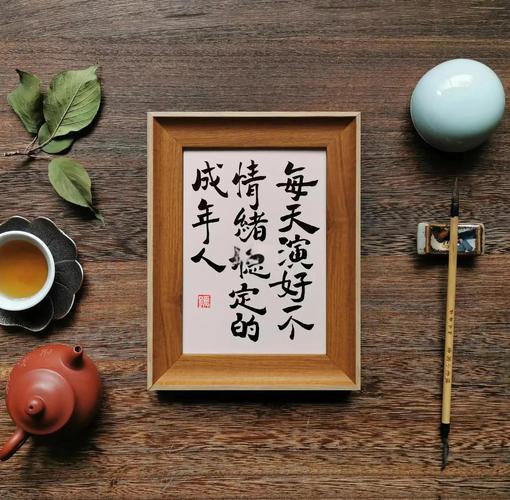 每天演好一个
情绪稳定的
成年人